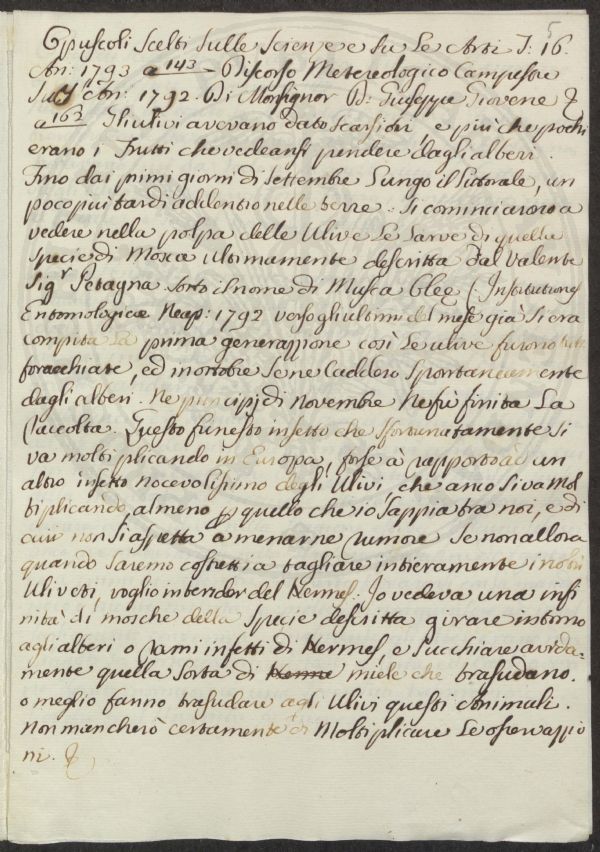 5
Opuscoli scelti sulle scienze e su le Arti T: 16.
An: 1793 a 143 – Discorso Metereologico Campestre
Sull' An: 1792. Di Monsignor D: Giuseppe Giovene &
a 163 Gli ulivi avevano dato scarsi fiori, e più che pochi
erano i Frutti che vedeansi pendere dagli alberi.
Fino dai primi giorni di settembre Lungo il littorale, un
poco piu tardi addentro nelle terre: si cominciarono a
vedere nella polpa delle Ulive Le Larve di quella
specie di Mosca ultimamente descritta dal valente
Sigr Petagna sotto il nome di Musca Oleę (Institutiones
Entomologicæ Neap: 1792 verso gli ultimi del mese già si era
compita La prima generazzione così Le ulive furono tutte
foracchiate, ed in ottobre se ne caddero spontaneamente
dagli alberi. Ne principj di novembre Ne fù finita La
raccolta. Questo funesto insetto che sfortunatamente si
va moltiplicando in Europa, forse à rapporto ad un
altro insetto nocevolissimo degli Ulivi, che anco si va mol
tiplicando, almeno p quello che io sappia tra noi, e di
cui non si aspetta a menarne rumore se non allora
quando saremo costretti a tagliare intieramente i nostri
Uliveti, voglio intender del Kermes. Io vedeva una infi
nità di mosche della specie descritta girare intorno
agli alberi o rami infetti di Kermes, e succhiare avida-
mente quella sorta di Kerme miele che trasudano.
o meglio fanno trasudare agli Ulivi questi Animali.
Non mancherò certamente di Moltiplicare Le osservazzio
ni. &